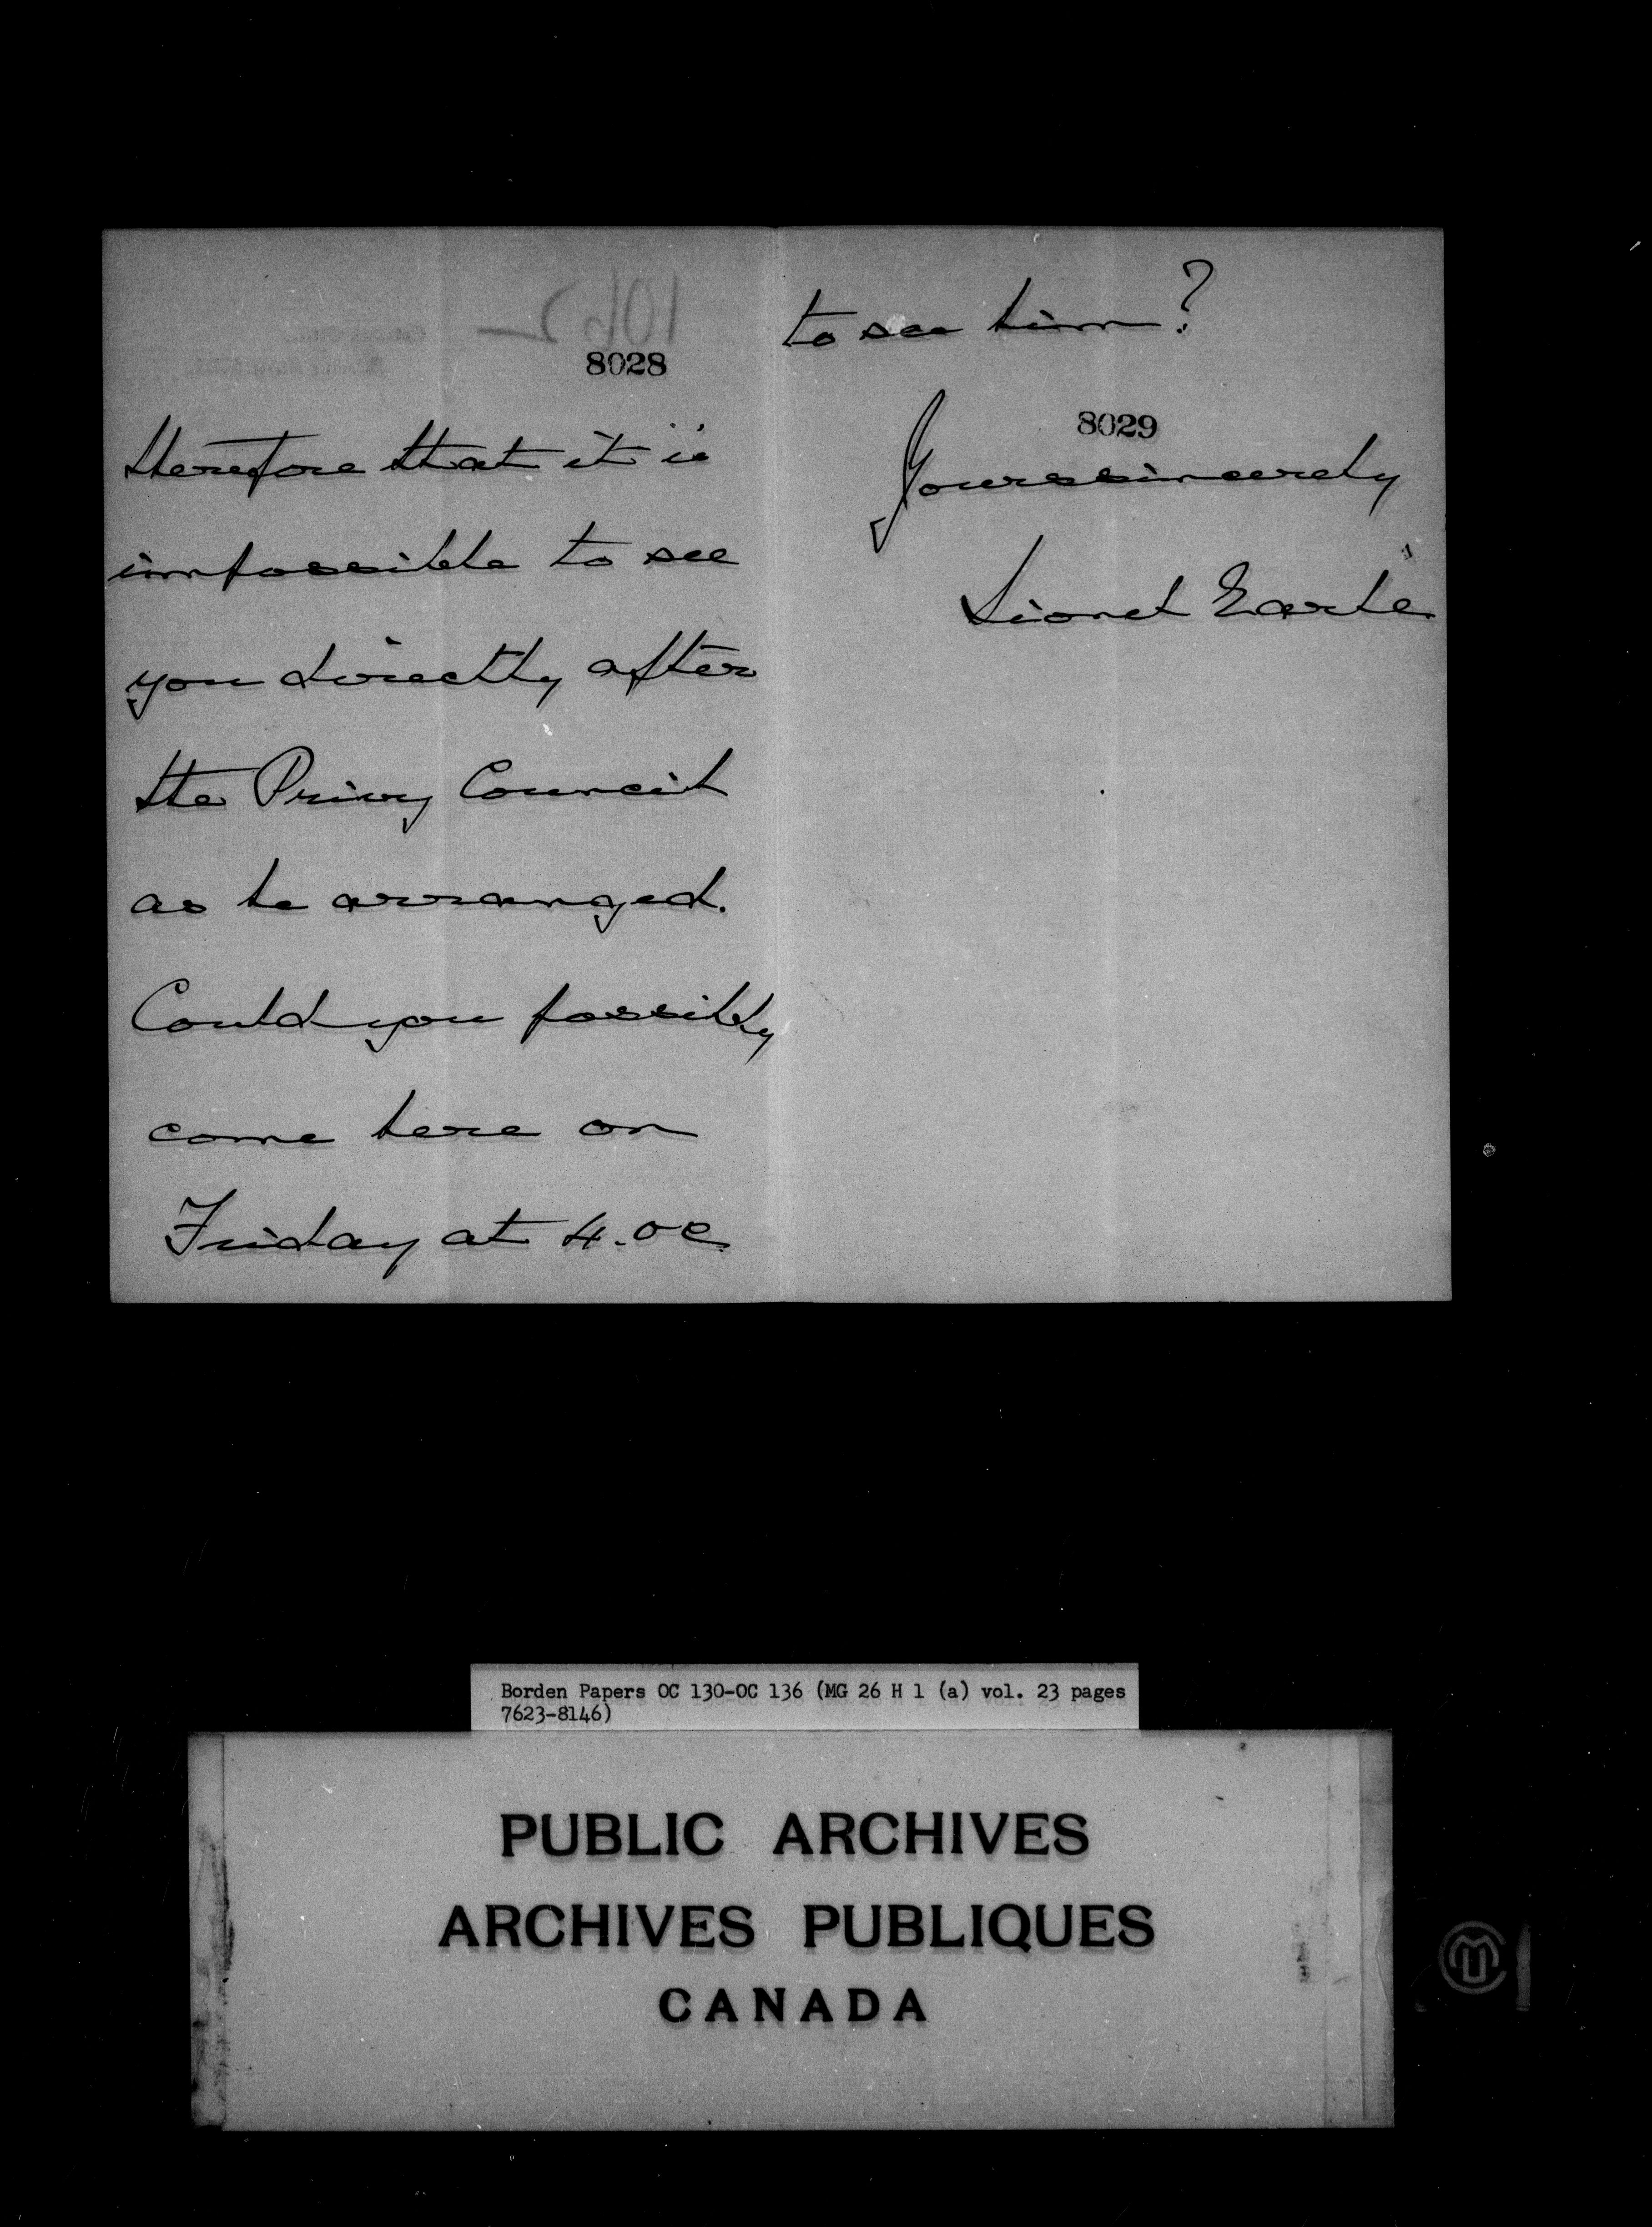 8028
therefore that it is
impossible to see
you directly after
the Privy Council
as he arranged.
Could you possibly
come here on
Friday at 4.oc
to see him?
8029
Yours sincerely
Lionel Earle
Borden Papers OC 130-OC 136 (MG 26 H 1 (a) vol. 23 pages
7623-8146)
PUBLIC ARCHIVES
ARCHIVES PUBLIQUES
CANADA